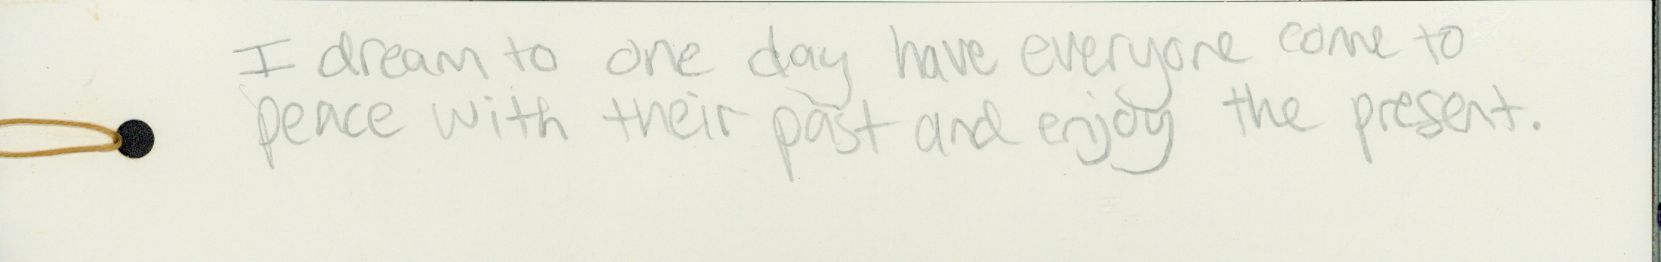 I dream to one day have everyone come to
peace with their past and enjoy the present.